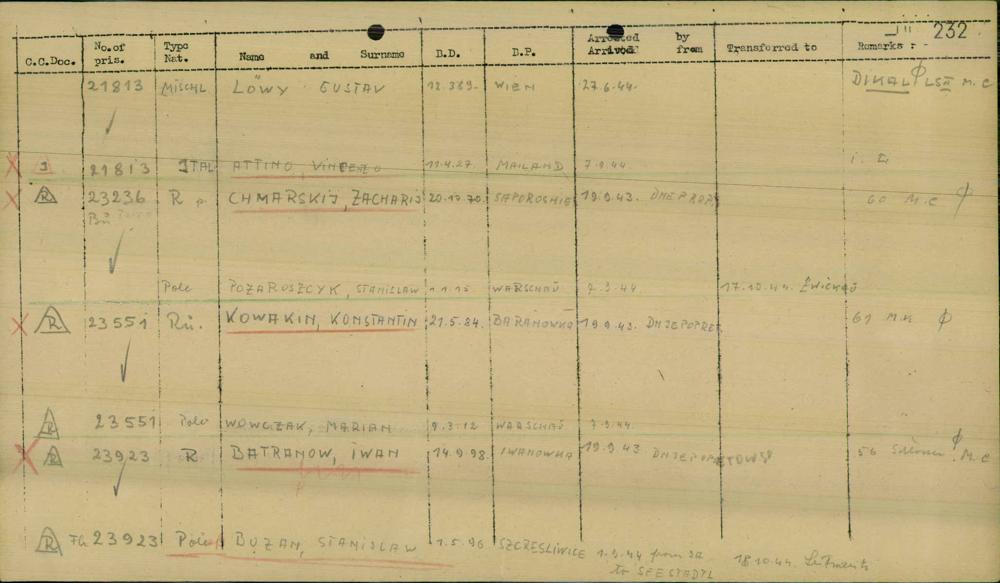 232
C.C.Doc. No.of pris. Type Nat. Name and Surname B.D. B.P. Arrested Arrived by from Transferred to Remarks :
21813 MISCHL LÖWY GUSTAV 12.3.89. WIEN 27.6.44. DIKAL M.C
I 21813 ITAL ATTINO, VINCENZO 11.4.27. MAILAND 7.9.44
R 23236 R CHMARSKIJ, ZACHARIJ SAPOROSHIE 19.9.43. DNEPROP. 60 M.C
Pole POZAROSZCYK, STANISLAW 1.1.15 WARSCHAU 7.9.44. 17.10.44. Zwickau
R 23551 Ru. KOWAKIN, KONSTANTIN 21.5.84. BARANOWKA 19.9.43. DNJEPOPRET. 61 M.C
R 23551 Pole WOWCZAK, MARIAN 9.3.12 WARSCHAU 7.9.44.
R 23923 R BATRANOW, IWAN 14.9.98. IWANOWKA 19.9.43 DNJEPOPETOWSK 56 M.C
R 23923 Pole BUZAN, STANISLAW 1.5.96 SZCZESLIWICE 1.9.44 from SA 18.10.44. Leitmeritz
to SEESTADTL